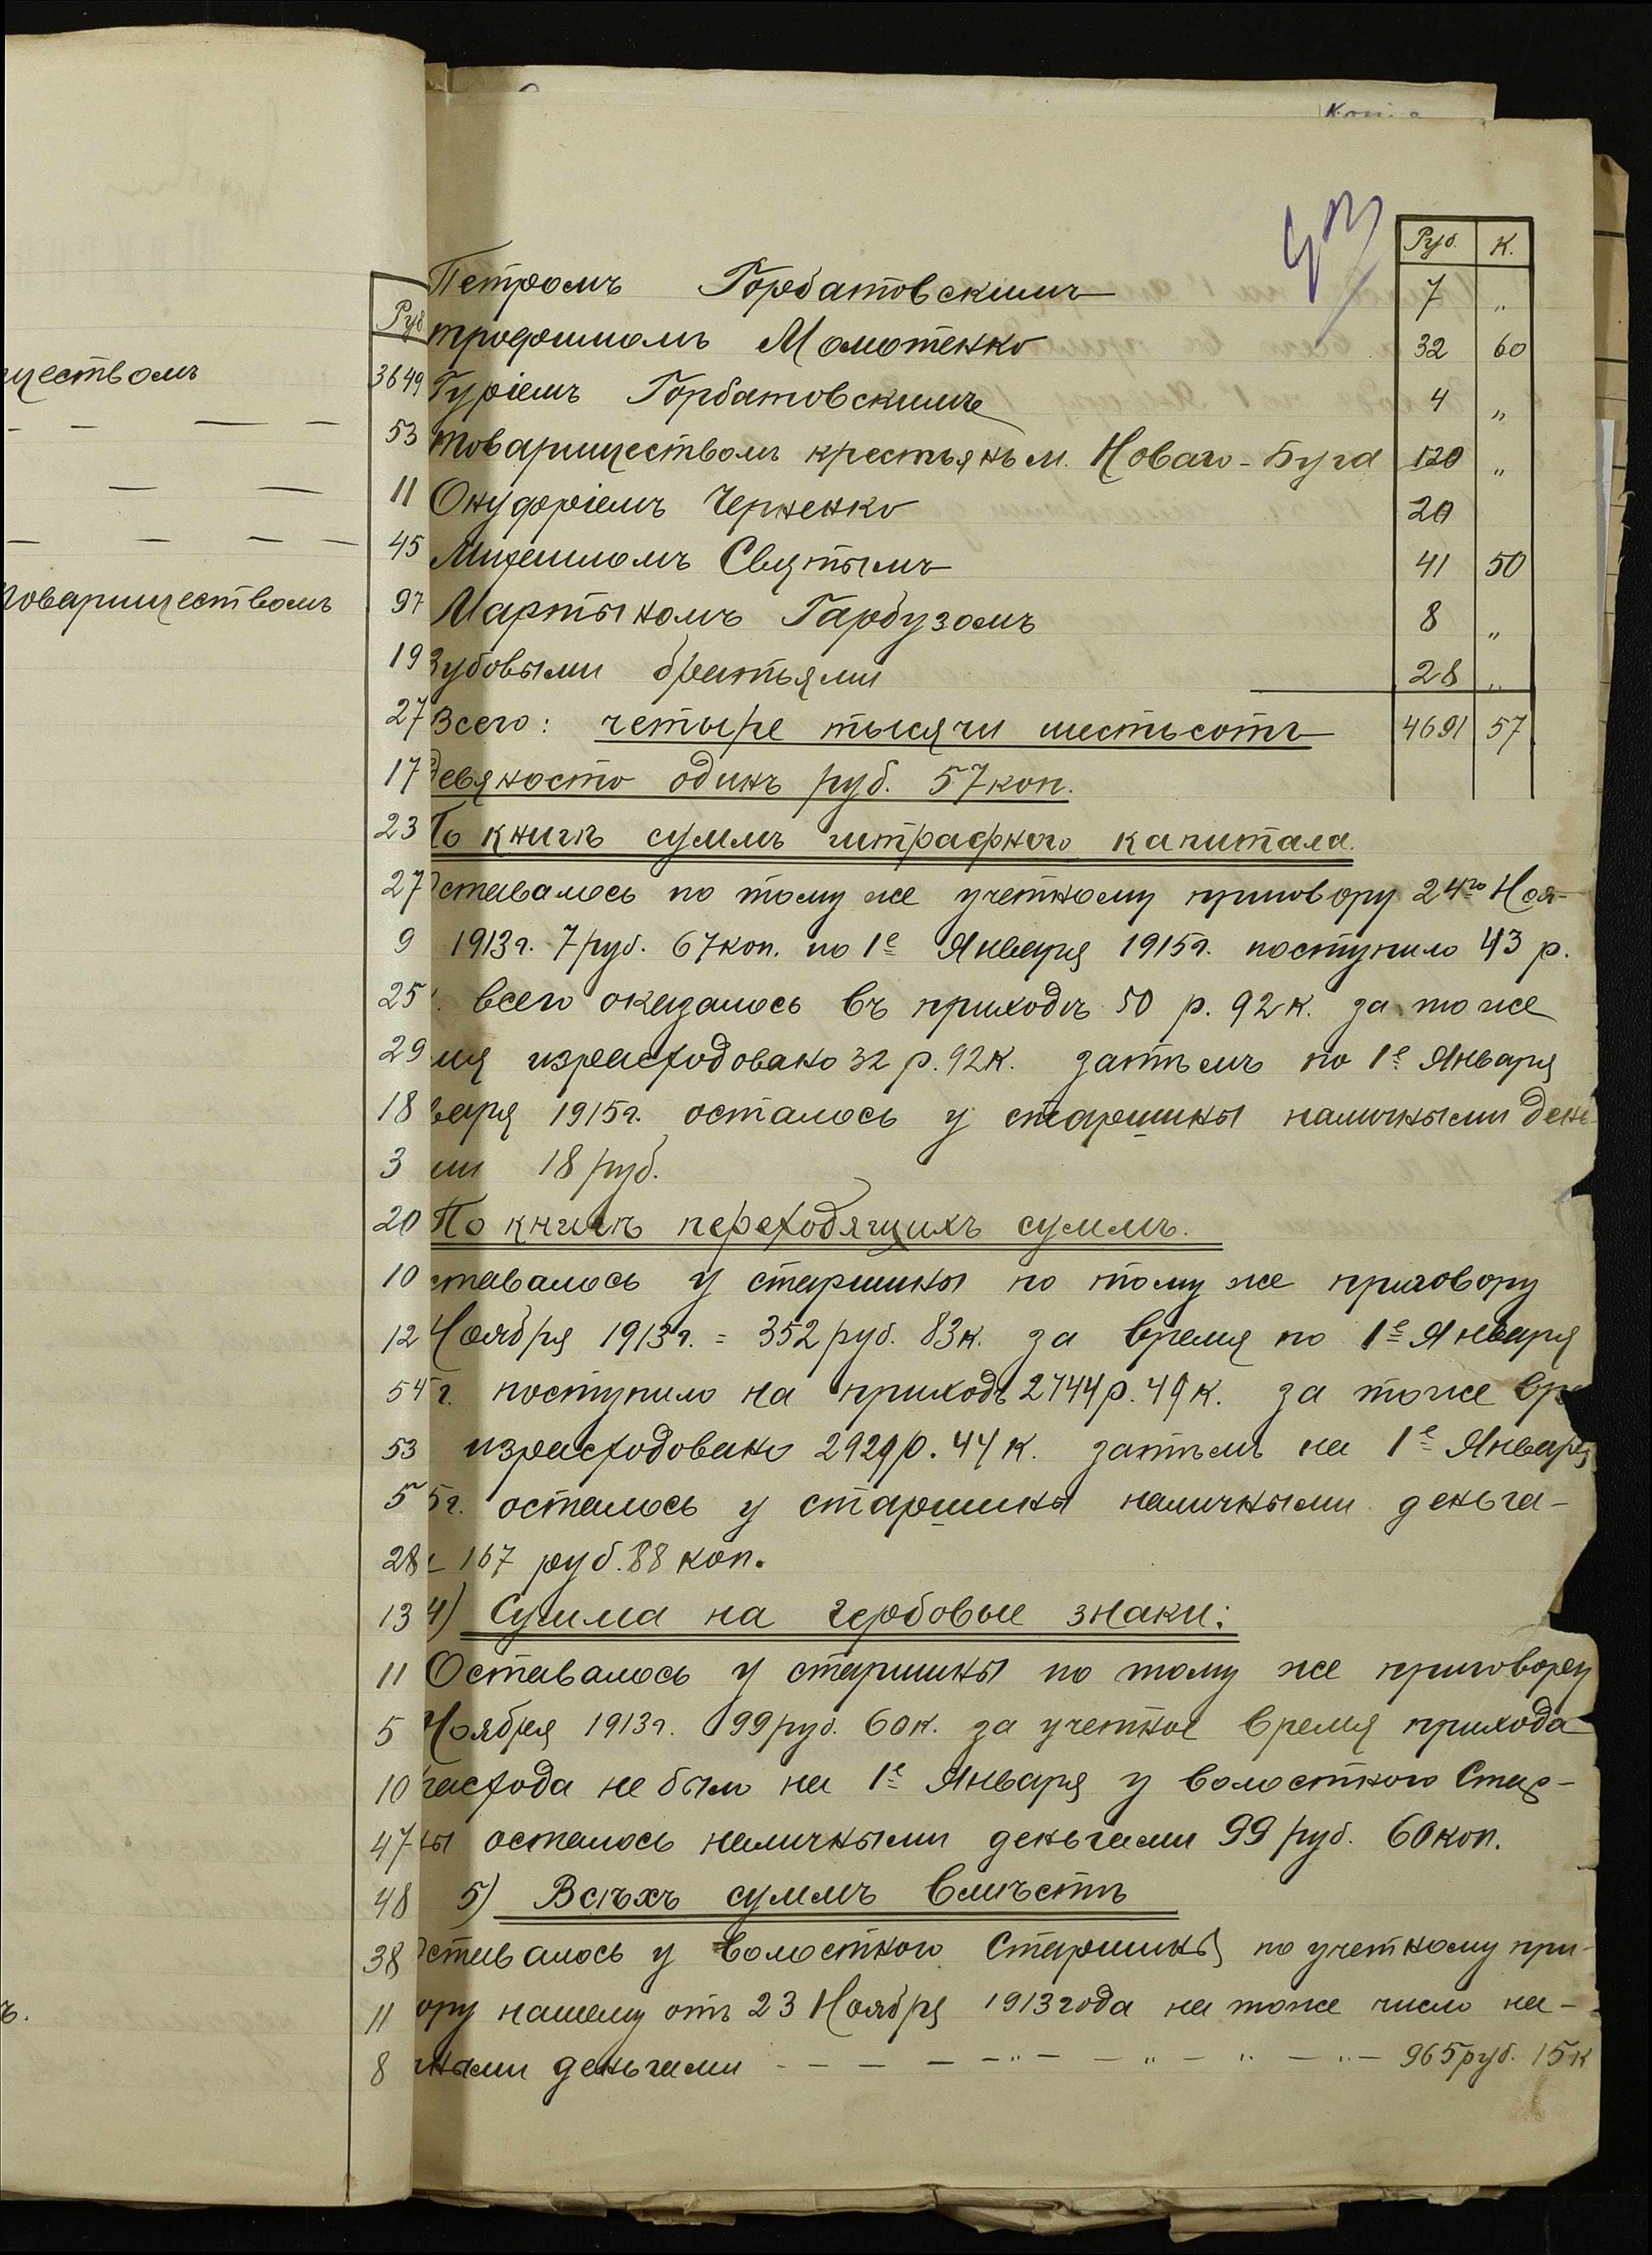 Руб. К.
Петромъ Горбатовскимъ 7 "
Трофимомъ Момотенко 32 60
Гуріемъ Горбатовскимъ 4 "
Товариществомъ крестьянъ м. Новаго-Буга 120 "
Онуфріемъ Черненко 20
Михаиломъ Святымъ 41 50
Мартыномъ Гарбузомъ 8 "
Зубовыми братьями 28 "
Всего: четыре тысячи шестьсотъ 4691 57
девяносто одинъ руб. 57 коп.
По книгѣ суммъ штрафного капитала.
Оставалось по тому же учетному приговору 24го Ноя-
1913 г. 7 руб. 67 коп. по 1е Января 1915 г. поступило 43 р.
всего оказалось въ приходѣ 50 р. 92 к. за тоже
мя израсходовано 32 р. 92 к. затѣмъ по 1е Января
варя 1915 г. осталось у старшины наличными день
ми 18 руб.
По книгѣ переходящихъ суммъ.
ставалось у старшины по тому же приговору
Ноября 1913 г. = 352 руб. 83 к. за время по 1е Января
г. поступило на приходъ 2744 р. 49 к. за тоже вре
израсходовано 2929 р. 44 к. затѣмъ на 1е Января
5 г. осталось у старшины наличными деньга-
167 руб. 88 коп.
4) Сумма на гербовые знаки:
Оставалось у старшины по тому же приговору
Ноября 1913 г. 99 руб. 60 к. за учетное время прихода
расхода не было на 1е Января у волостного Стар-
ны осталось наличными деньгами 99 руб. 60 коп.
5) Всѣхъ суммъ вмѣстѣ
Оставалось у волостного Старшины по учетному при-
ору нашему отъ 23 Ноября 1913 года на тоже число на-
чными деньгами - - - - - " - - " - " - " - 965 руб. 15 к
Руб
ществомъ 3649
53
11
45
товариществомъ 97
19
27
17
23
27
9
25
29
18
3
20
10
12
54
53
5
28
13
11
5
10
47
48
38
ъ. 11
8